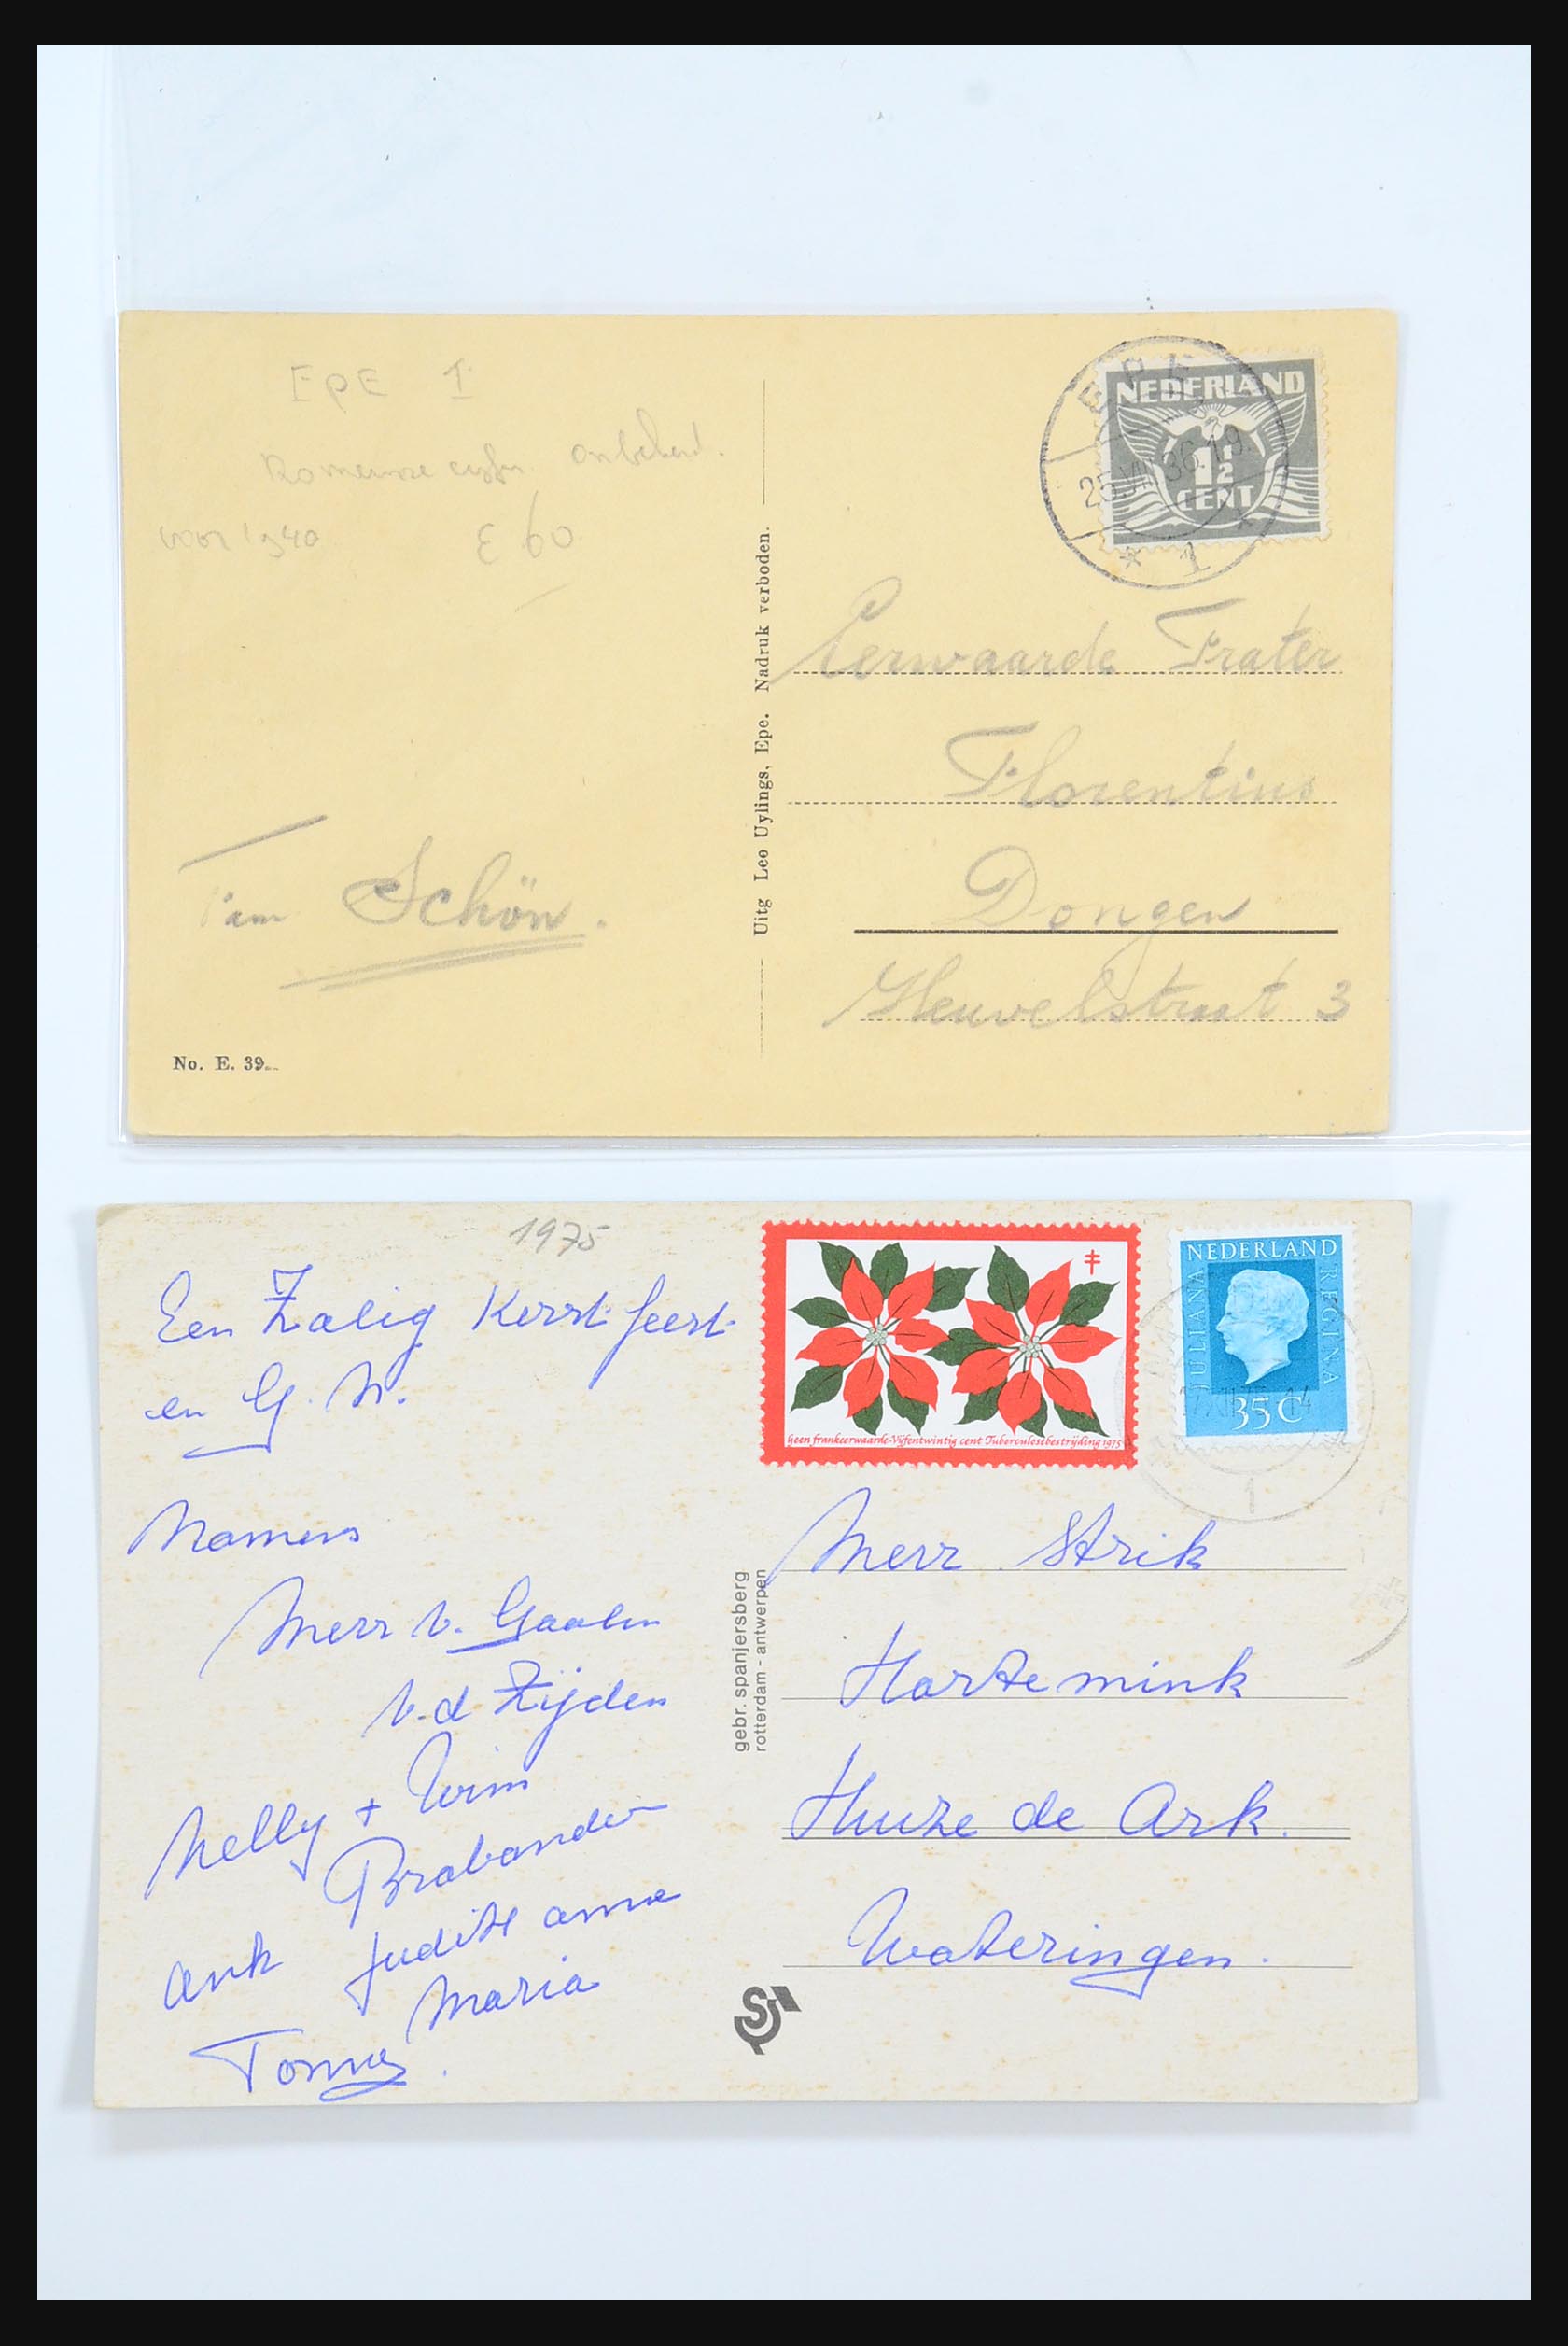 EpE 1
Romeinse cijfer onbekend.
voor 1940 € 60
EPE
25.VII.36.19
* 1
NEDERLAND
1½
CENT
Eerwaarde Frater
Florentius
Dongen
Heuvelstraat 3
Uitg Leo Uylings, Epe. Nadruk verboden.
Schön.
No. E. 39
1975
Een Zalig Kerstfeest
en G. N.
Namens
Merr v. Gaalen
v.d Zijden
Nelly + Wim
Brabander
Ank Judith anna
Maria
Tonny.
Geen frankeerwaarde-Vijfentwintig cent Tuberculosebestrijding 1975
NEDERLAND
JULIANA REGINA
35 C
14
1
gebr. spanjersberg
rotterdam - antwerpen
Merr Strik
Hartemink
Huize de Ark.
Wateringen.